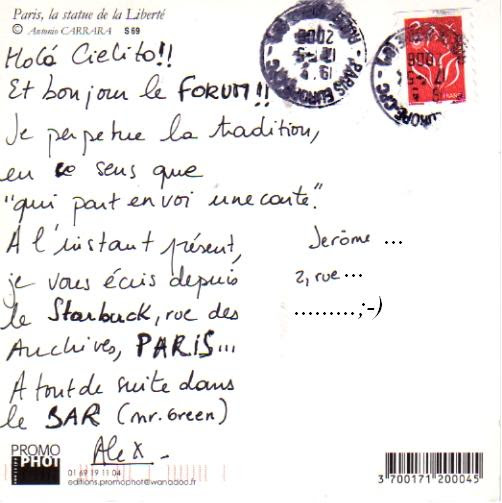 Paris, la statue de la Liberté
© Antonio CARRARA S 69
Holà Cielito!!
Et bonjour le FORUM!!
Je perpetue la tradition,
en ce sens que
"qui part envoi une carte".
A l'instant présent,
je vous écris depuis
le Starbuck, rue des
Archives, PARIS...
A tout de suite dans
le BAR (mr. Green)
Alex
Jerôme ...
2, rue ...
.........;-)
FRANCE
PROMO
PHOT
01 69 19 11 04
editions.promophot@wanadoo.fr
3 700171 200045